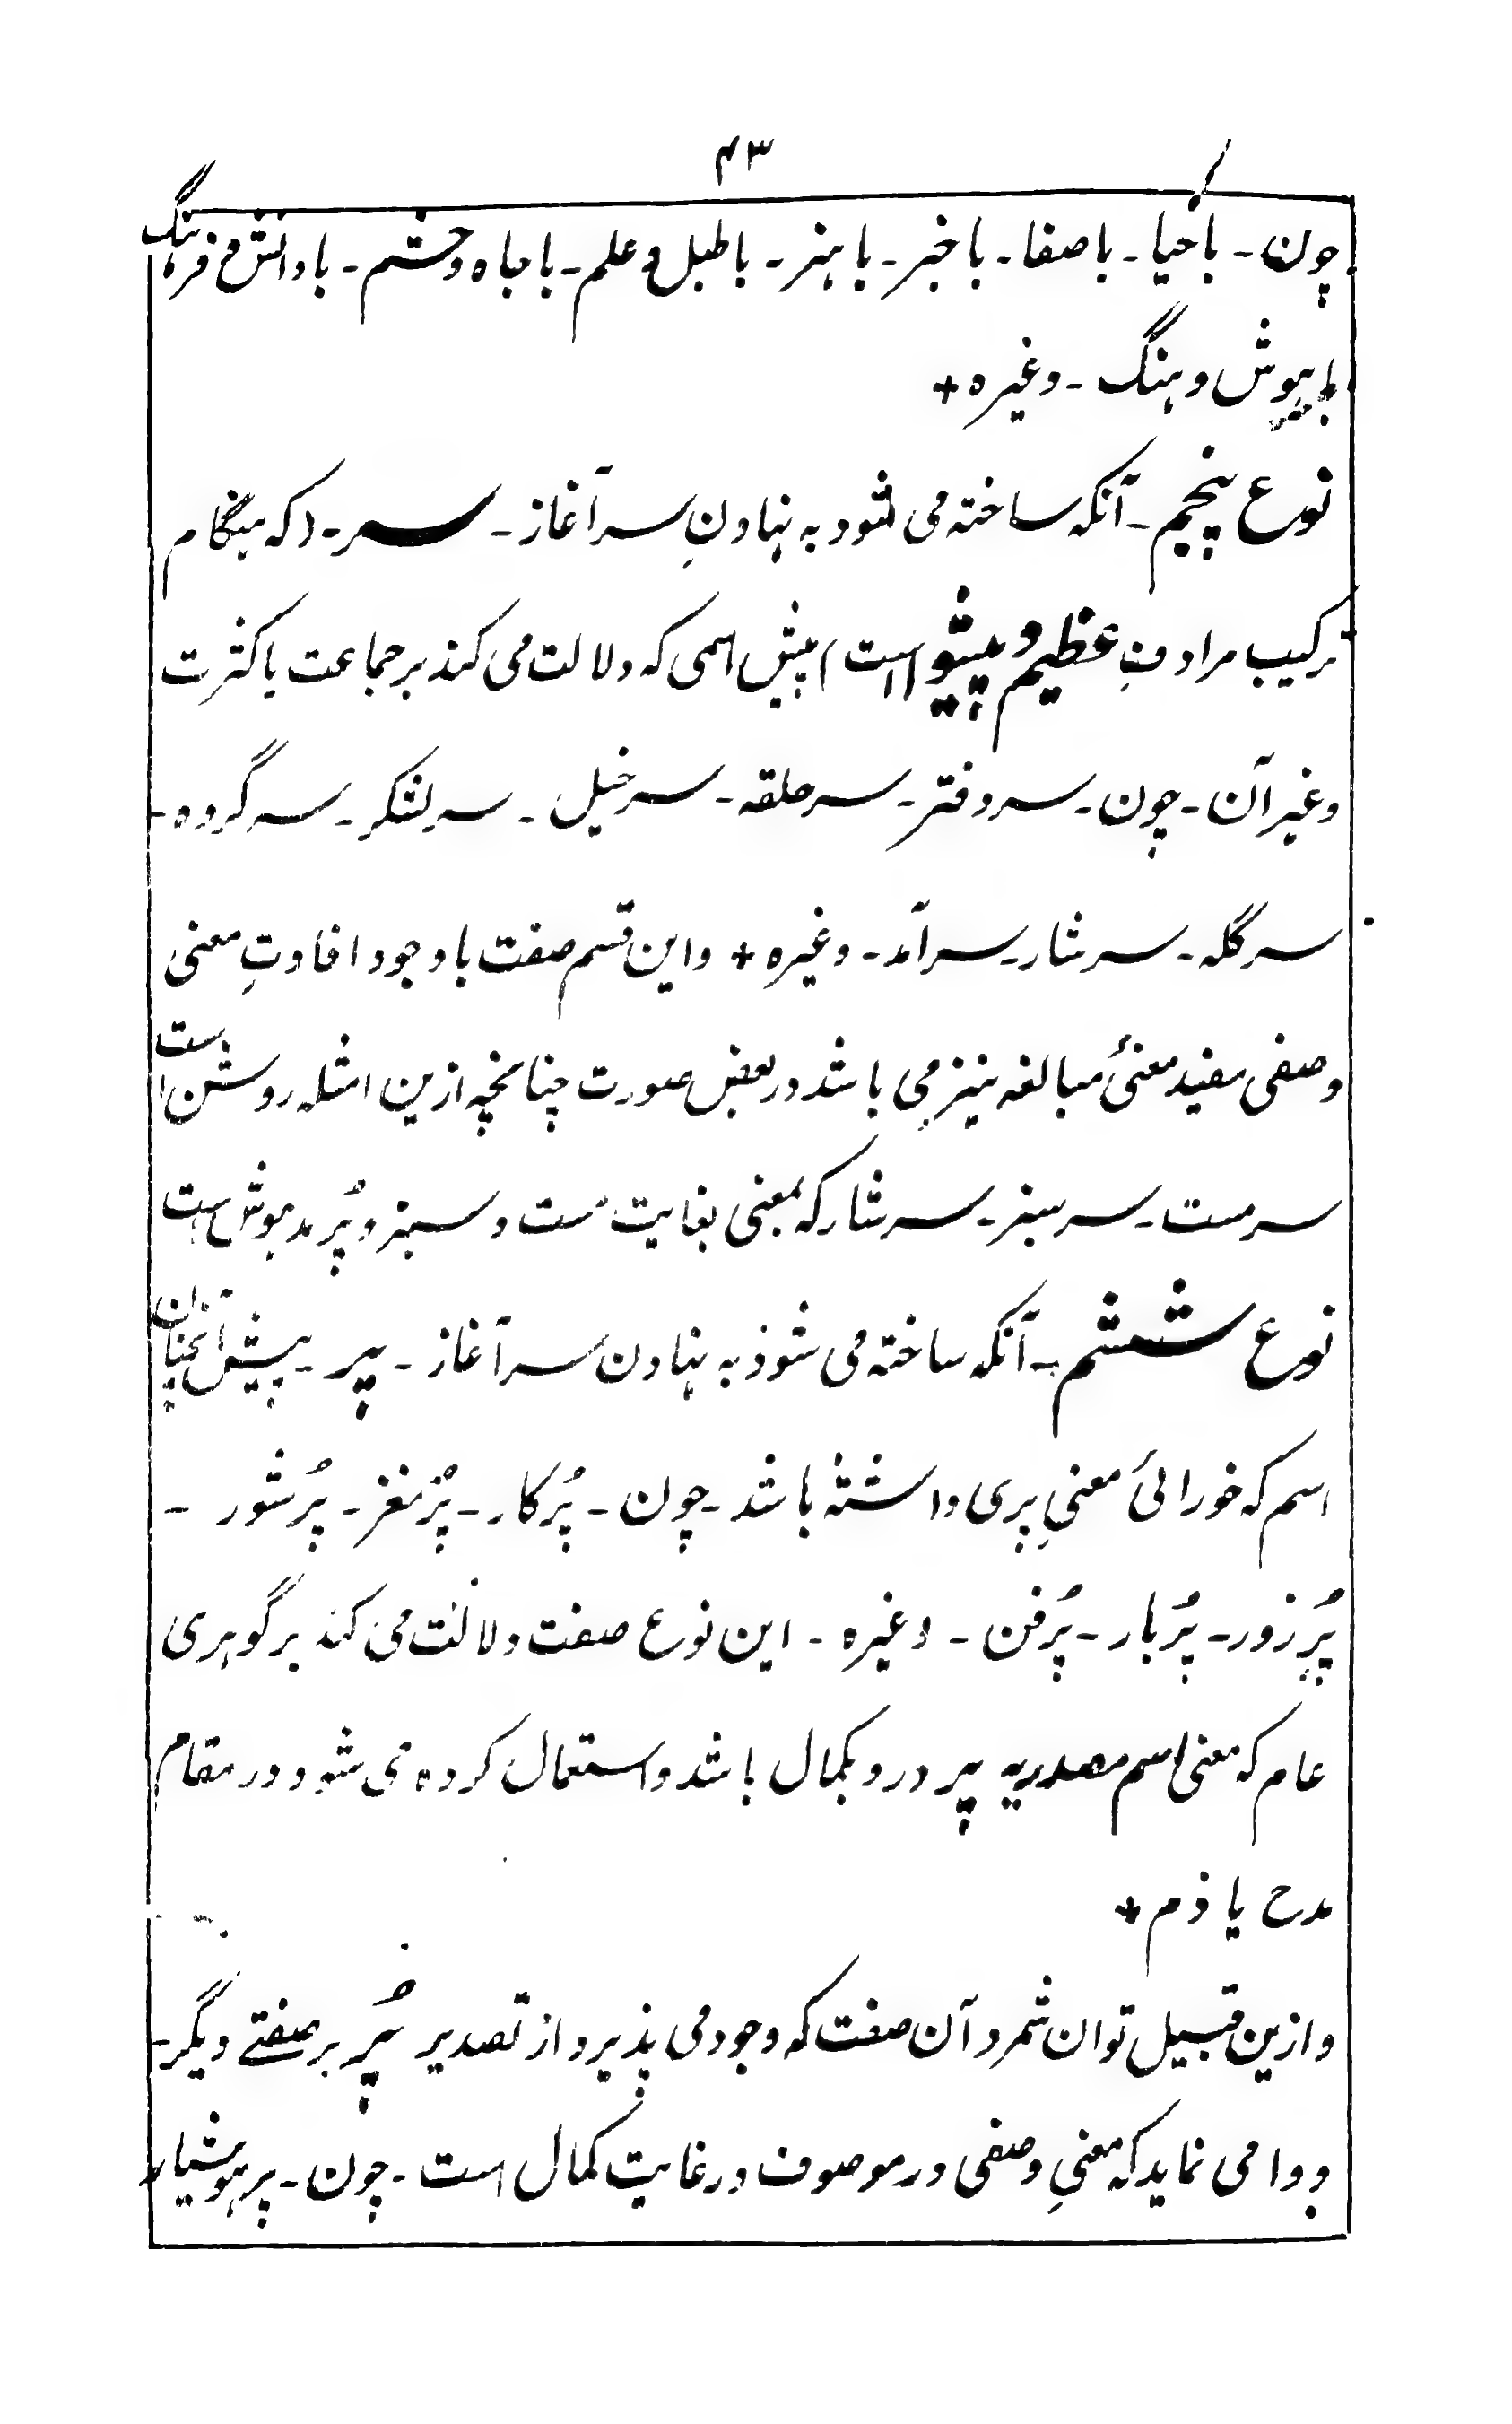 ۴۳
چون - باحیا - باصفا - باخبر - باہنر - باطبل و علم - باجاہ و حشم - بادانش و فرہنگ
باہوش و ہنگ - وغیرہ +
نوع پنجم - آنکہ ساختہ می شود بہ نہادنِ سرآغاز - سر - (کہ ہنگام
ترکیب مرادفِ عظیم و پیشوا است) پیش اسمی کہ دلالت می کند بر جماعت باکثرت
و غیر آن - چون - سردفتر - سرحلقہ - سرخیل - سرلشکر - سرگروہ -
سرگلہ - سرشار - سرآمد - وغیرہ + و این قسم صفت باوجود افادتِ معنی
وصفی مفید معنیٔ مبالغہ نیز می باشد در بعض صورت چنانچہ ازین امثلہ روشن است
سرمست - سرسبز - سرشار کہ بمعنی بغایت مست و سبز و پُر مدہوش است
نوع ششم - آنکہ ساختہ می شود بہ نہادن سرآغاز - پر - پیش آنچنان
اسم کہ خورائیٔ معنیِ پری داشتہ باشد - چون - پُرکار - پُرمغز - پُرشور -
پُرزور - پُربار - پُرفن - وغیرہ - این نوع صفت دلالت می کند بر گوہری
عام کہ معنی اسم مصدریہ پر درو بکمال باشد و استعمال کردہ می شود در مقام
مدح یا ذم +
و ازین قبیل توان شمرد آن صفت کہ وجود می پذیرد از تصدیر پُر بر صفتے دیگر -
و وا می نماید کہ معنیِ وصفی در موصوف در غایت کمال است - چون - پرہوشیار